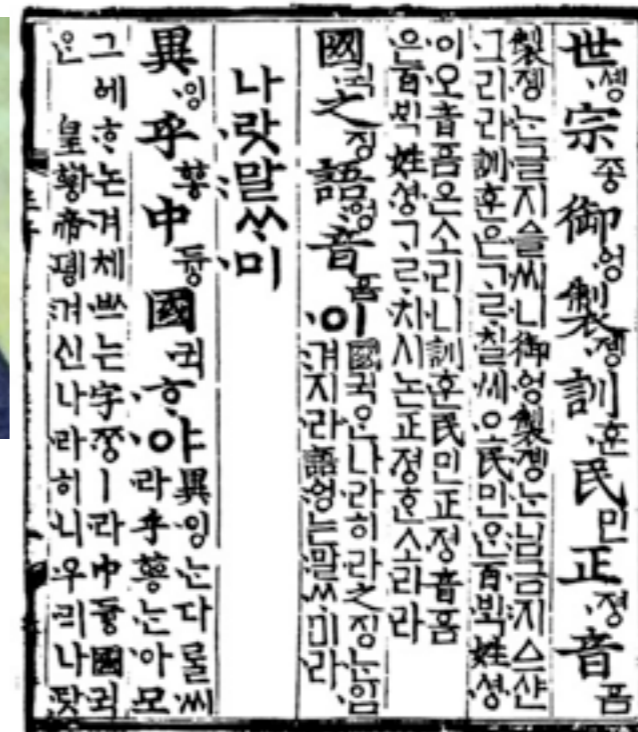 世솅宗종御엉製졩訓훈民민正졍音ᅙᅳᆷ
製졩는글지ᅀᅳᆯ씨니御엉製졩는님금지ᅀᅳ샨
그리라訓훈은ᄀᆞᄅᆞ칠씨오民민ᄋᆞᆫ百ᄇᆡᆨ姓셩
이오音ᅙᅳᆷ은소리니訓훈民민正졍音ᅙᅳᆷ
은百ᄇᆡᆨ姓셩ᄀᆞᄅᆞ치시논正졍ᄒᆞᆫ소리라
國귁之징語ᅌᅥᆼ音ᅙᅳᆷ이
國귁ᄋᆞᆫ나라히라之징ᄂᆞᆫ입
겨지라語ᅌᅥᆼ는말ᄊᆞ미라
나랏말ᄊᆞ미
異잉乎ᅘᅩᆼ中듕國귁ᄒᆞ야
異잉ᄂᆞᆫ다ᄅᆞᆯ씨
라乎ᅘᅩᆼᄂᆞᆫ아모
그에ᄒᆞ논겨체쓰는字ᄍᆞᆼㅣ라中듕國귁
ᄋᆞᆫ皇ᅘᅪᆼ帝뎽겨신나라히니우리나랏